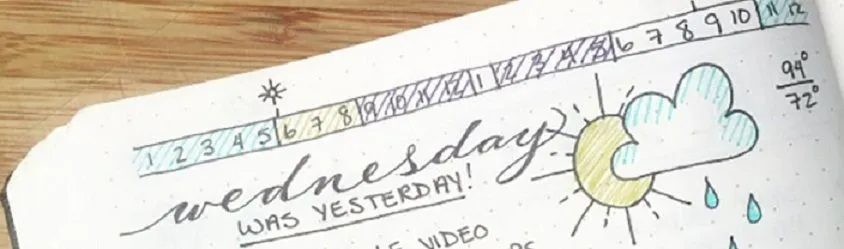 1 2 3 4 5 6 7 8 9 10 11 12 1 2 3 4 5 6 7 8 9 10 11 12
94°
72°
wednesday
WAS YESTERDAY!
VIDEO